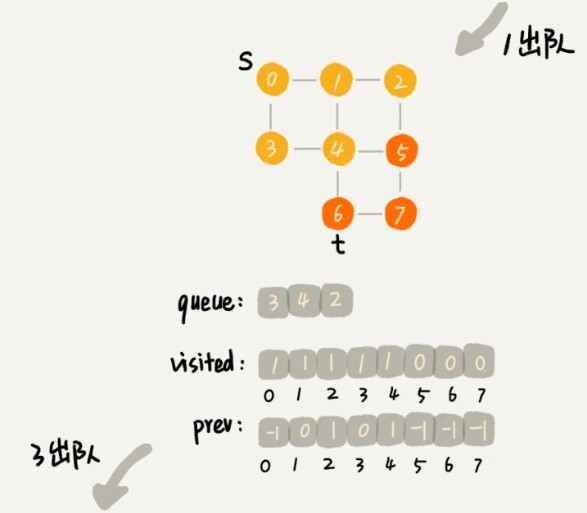 1出队
S
0 1 2
3 4 5
6 7
t
queue: 3 4 2
visited: 1 1 1 1 1 0 0 0
0 1 2 3 4 5 6 7
prev: -1 0 1 0 1 -1 -1 -1
0 1 2 3 4 5 6 7
3出队